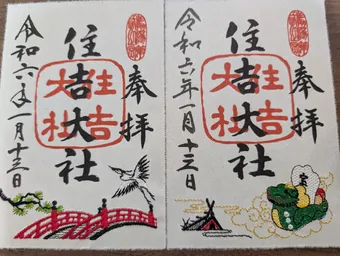 奉拝
住吉大社
住吉大社
令和六年一月十三日
奉拝
住吉大社
住吉大社
令和六年一月十三日